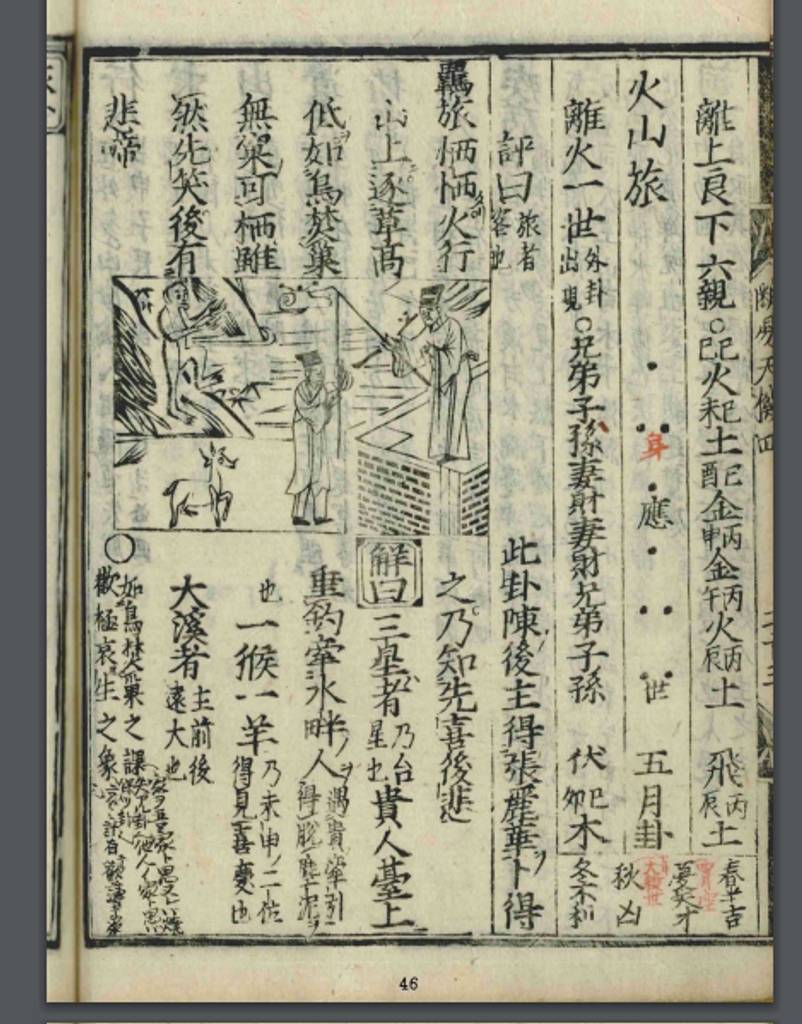 離上艮下六親○己巳火己未土己酉金丙申金丙午火丙辰土 飛丙辰土
春半吉
夏災才
火山旅 身 應 世 五月卦
秋凶
離火一世外卦出現○兄弟子孫妻財妻財兄弟子孫 伏卯己木
冬不利
評曰旅者客也
此卦陳後主得張麗華卜得
之乃知先喜後悲
羈旅恓恓火行
山上逐草高
低如鳥焚巢
無巢可栖雖
然先笑後有
悲啼
解曰三星者乃台星也貴人臺上
垂釣牽水畔人遇貴牽引得脫塵泥
也一猴一羊乃未申二位得見喜慶也
大溪者主前後遠大也
○如鳥焚巢之課
歡極哀生之象
46